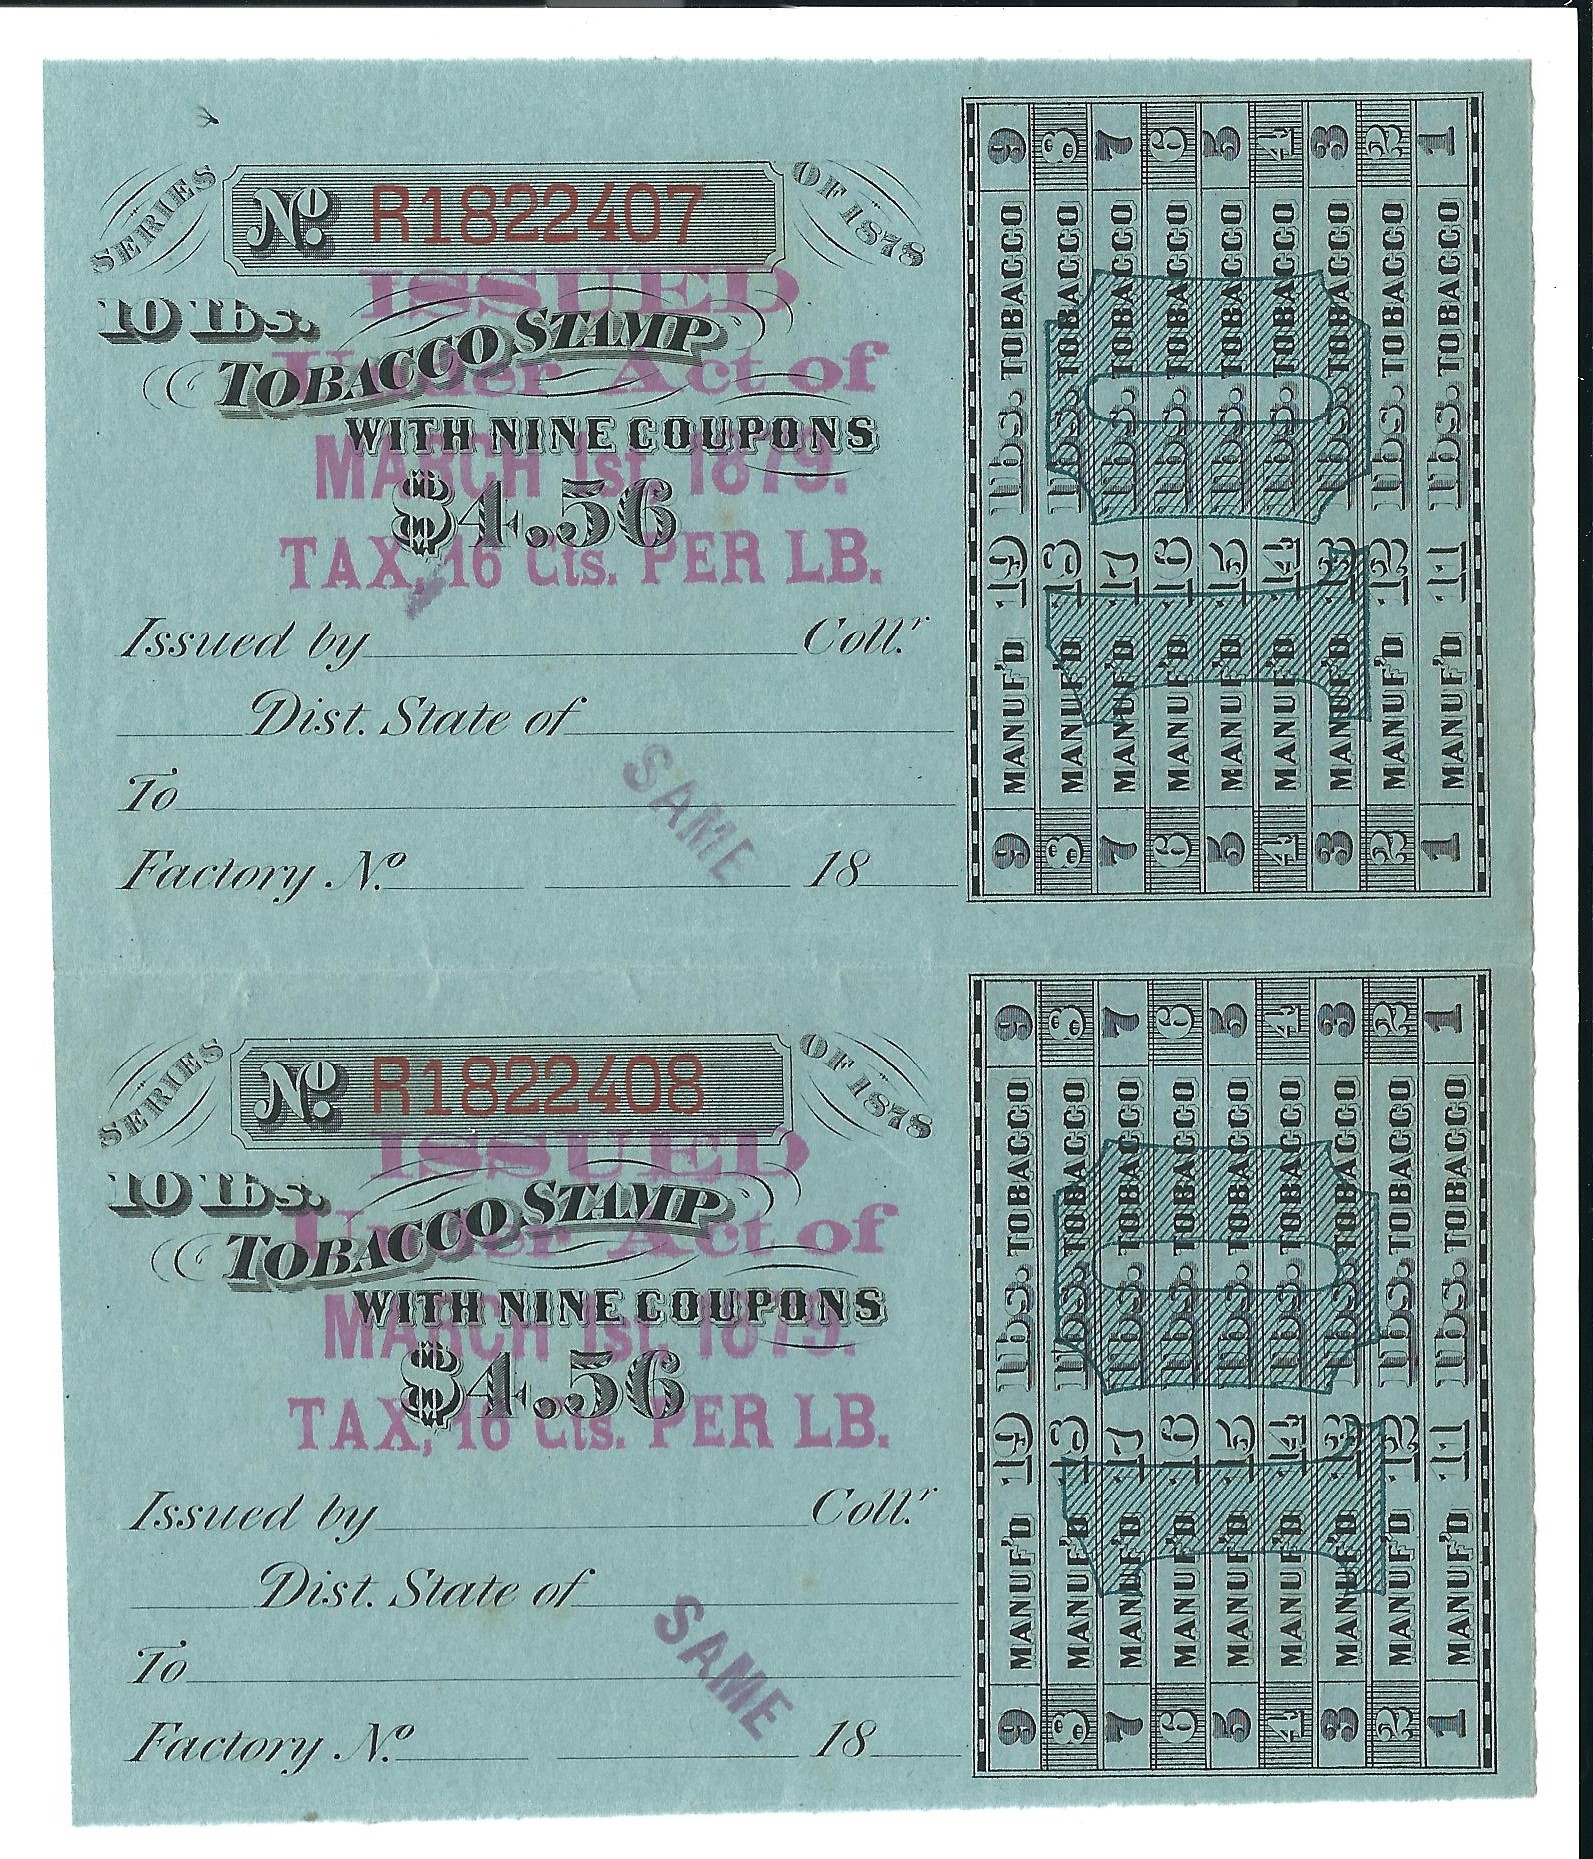 SERIES Nº R1822407 OF 1878
ISSUED
10 lbs.
TOBACCO STAMP
Under Act of
WITH NINE COUPONS
MARCH 1st, 1879.
$4.56
TAX, 16 Cts. PER LB.
Issued by Coll.r
Dist. State of
To
SAME
Factory Nº. 18
9 MANUF'D 19 lbs. TOBACCO 9
8 MANUF'D 18 lbs. TOBACCO 8
7 MANUF'D 17 lbs. TOBACCO 7
6 MANUF'D 16 lbs. TOBACCO 6
5 MANUF'D 15 lbs. TOBACCO 5
4 MANUF'D 14 lbs. TOBACCO 4
3 MANUF'D 13 lbs. TOBACCO 3
2 MANUF'D 12 lbs. TOBACCO 2
1 MANUF'D 11 lbs. TOBACCO 1
10
SERIES Nº R1822408 OF 1878
ISSUED
10 lbs.
TOBACCO STAMP
Under Act of
WITH NINE COUPONS
MARCH 1st, 1879.
$4.56
TAX, 16 Cts. PER LB.
Issued by Coll.r
Dist. State of
To
SAME
Factory Nº. 18
9 MANUF'D 19 lbs. TOBACCO 9
8 MANUF'D 18 lbs. TOBACCO 8
7 MANUF'D 17 lbs. TOBACCO 7
6 MANUF'D 16 lbs. TOBACCO 6
5 MANUF'D 15 lbs. TOBACCO 5
4 MANUF'D 14 lbs. TOBACCO 4
3 MANUF'D 13 lbs. TOBACCO 3
2 MANUF'D 12 lbs. TOBACCO 2
1 MANUF'D 11 lbs. TOBACCO 1
10